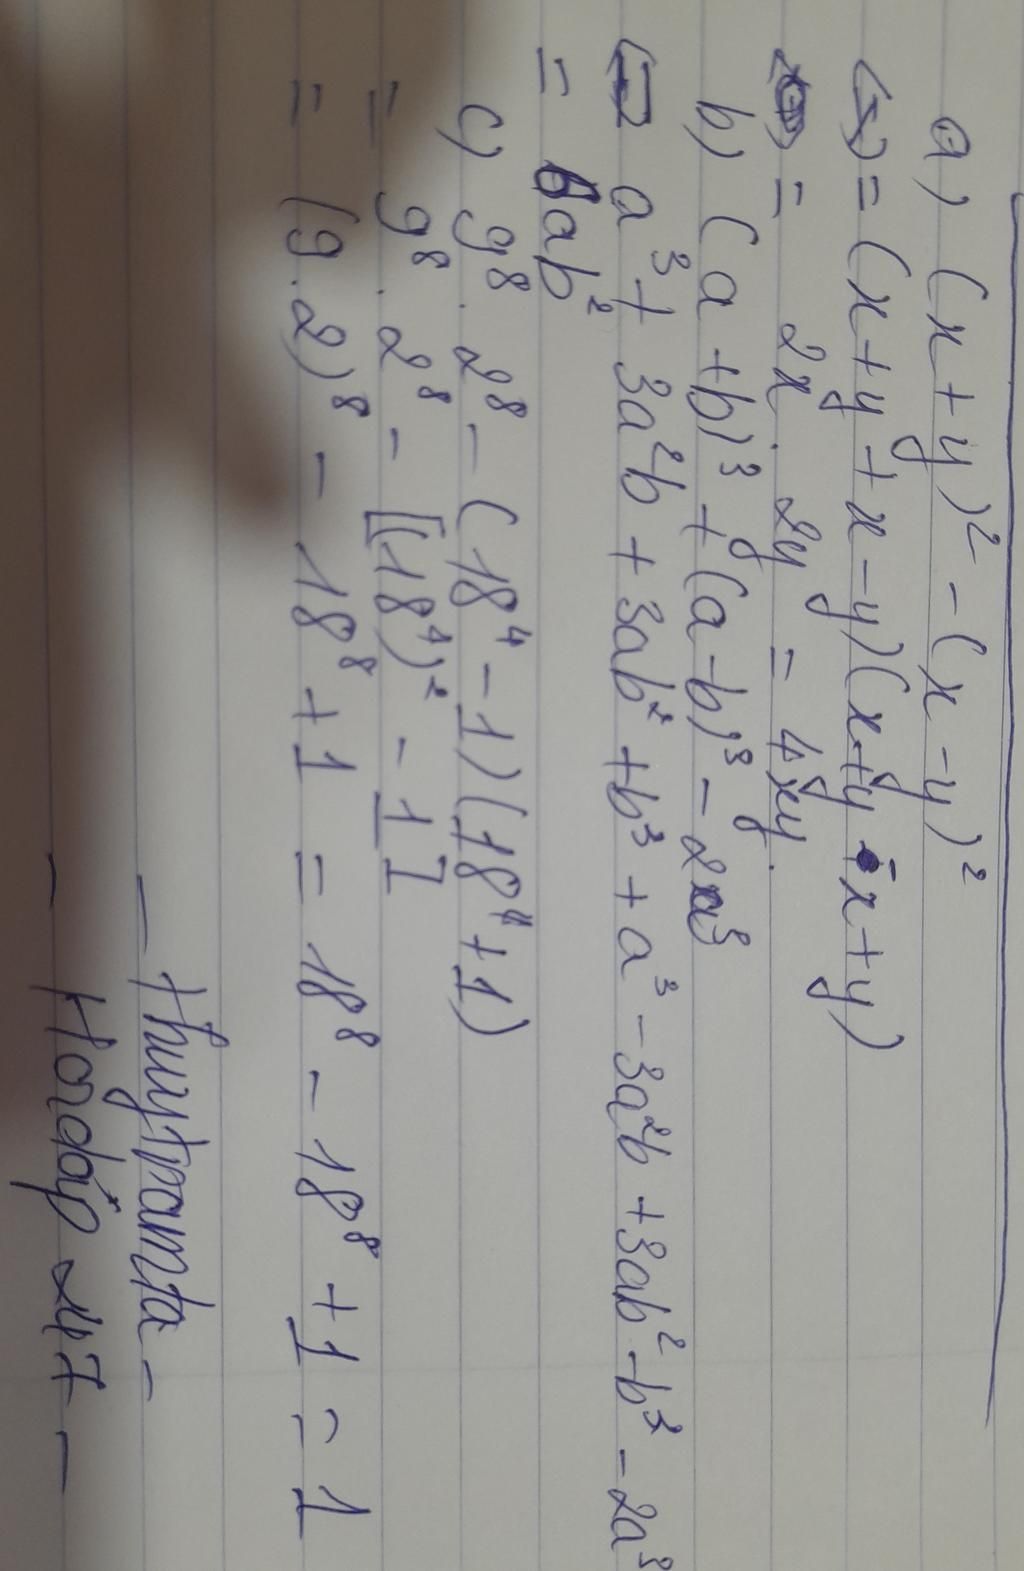 a) (x+y)² - (x-y)²
(=) = (x+y+x-y)(x+y-x+y)
= 2x . 2y = 4xy.
b) (a+b)³ + (a-b)³ - 2a³
= a³ + 3a²b + 3ab² + b³ + a³ - 3a²b + 3ab² - b³ - 2a³
= 6ab²
c) 9⁸ . 2⁸ - (18⁴ - 1)(18⁴ + 1)
= 9⁸ . 2⁸ - [(18⁴)² - 1]
= (9.2)⁸ - 18⁸ + 1 = 18⁸ - 18⁸ + 1 = 1
- thuytramta -
- Hoidap 247 -